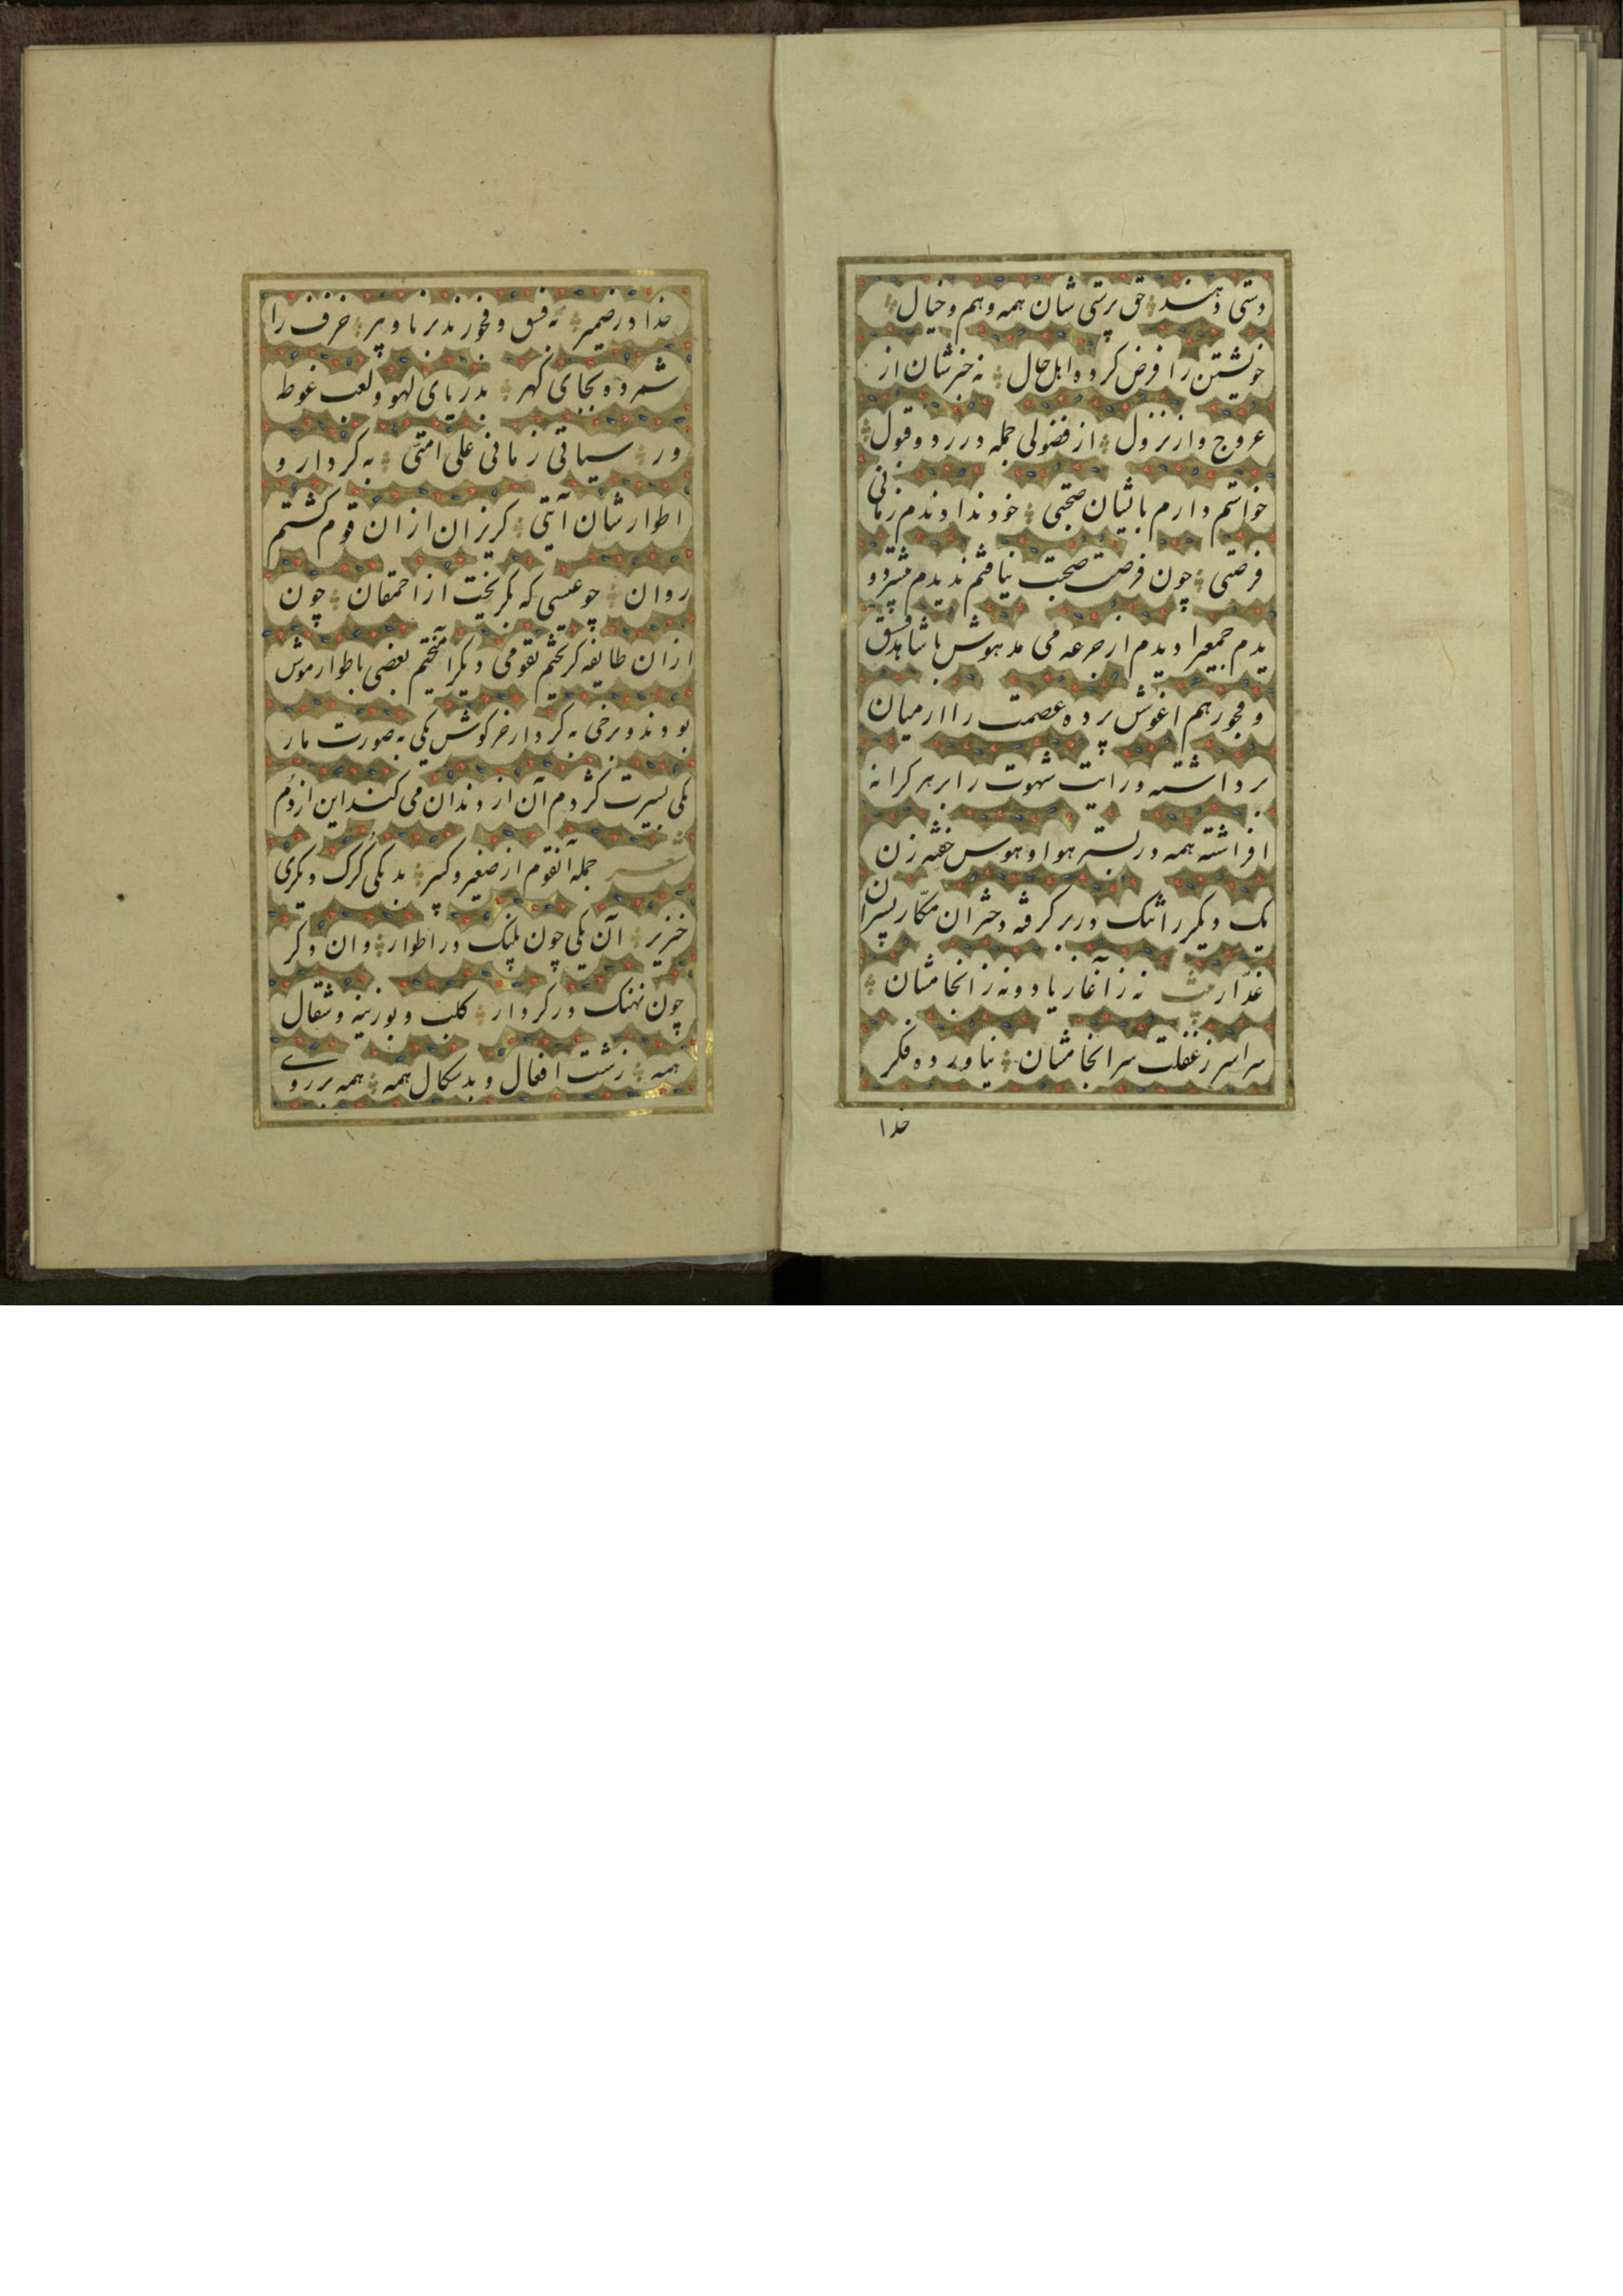 دستی دهند حق پرستی شان همه وهم و خیال
خویشتن را فرض کرده اهل حال نه خبرشان از
عروج و از نزول از فضولی جمله در رد و قبول
خواستم دارم باایشان صحبتی خود ندادندم زمانی
فرصتی چون فرصت صحبت نیافتم ندیدم
یدم جمعیرا دیدم از جرعه می مدهوش با شاهد فسق
و فجور هم اغوش پرده عصمت را از میان
برداشته و رایت شهوت را بر هر کرانه
افراشته همه در بستر هوا و هوس خفته زن
یک دیکر را تنک در بر کرفته دختران مکّار پسران
غدّار نه ز آغاز یاد و نه ز انجامشان
سراسر ز غفلت سرانجامشان نیاورده فکر
خدا
خدا در ضمیر نه فسق و فجورند برنا و پیر خزف را
شمرده بجای کهر بدریای لهو و لعب غوطه
ور سیاتی زمانی علی امتی به کردار و
اطوارشان آیتی کریزان ازان قوم کشتم
روان چو عیسی که بکریخت از احمقان چون
ازان طایفه کریختم بقومی دیکر آمیختم بعضی باطوار موش
بودند و برخی به کردار خرکوش یکی به صورت مار
یکی بسیرت کژدم آن از دندان می کند این از دُم
شعر جمله آنقوم از صغیر و کبیر بد یکی کُرک و دیکری
خنزیر آن یکی چون پلنک در اطوار وان دکر
چون نهنک در کردار کلب و بوزینه و شقال
همه زشت افعال و بدسکال همه همه بر روی